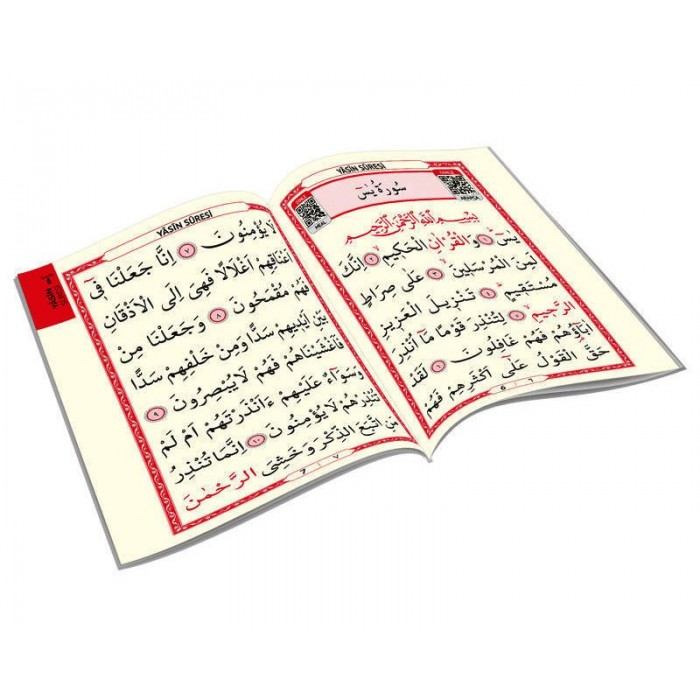 YÂSÎN SÛRESİ
سُورَةُ يٰسٓ
بِسْمِ اللّٰهِ الرَّحْمٰنِ الرَّحِيمِ
يٰسٓ ١ وَالْقُرْاٰنِ الْحَكِيمِ ٢ اِنَّكَ
لَمِنَ الْمُرْسَلِينَ ٣ عَلٰى صِرَاطٍ
مُسْتَقِيمٍ ٤ تَنْزِيلَ الْعَزِيزِ
الرَّحِيمِ ٥ لِتُنْذِرَ قَوْمًا مَٓا اُنْذِرَ
اٰبَٓاؤُهُمْ فَهُمْ غَافِلُونَ ٦ لَقَدْ
حَقَّ الْقَوْلُ عَلٰٓى اَكْثَرِهِمْ فَهُمْ
6 | ٦
YÂSÎN SÛRESİ
لَا يُؤْمِنُونَ ٧ اِنَّا جَعَلْنَا ف۪ٓى
اَعْنَاقِهِمْ اَغْلَالًا فَهِىَ اِلَى الْاَذْقَانِ
فَهُمْ مُقْمَحُونَ ٨ وَجَعَلْنَا مِنْ
بَيْنِ اَيْدِيهِمْ سَدًّا وَمِنْ خَلْفِهِمْ سَدًّا
فَاَغْشَيْنَاهُمْ فَهُمْ لَا يُبْصِرُونَ ٩
وَسَوَٓاءٌ عَلَيْهِمْ ءَاَنْذَرْتَهُمْ اَمْ لَمْ
تُنْذِرْهُمْ لَا يُؤْمِنُونَ ١٠ اِنَّمَا تُنْذِرُ
مَنِ اتَّبَعَ الذِّكْرَ وَخَشِىَ الرَّحْمٰنَ
7 | ٧
YÂSİN